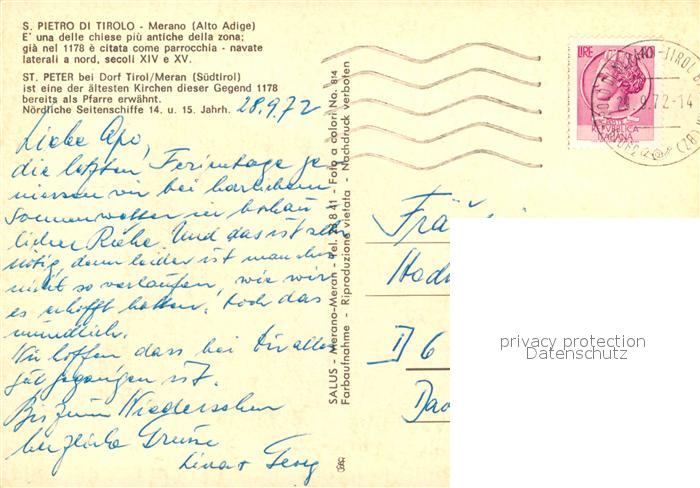 S. PIETRO DI TIROLO - Merano (Alto Adige)
E' una delle chiese più antiche della zona;
già nel 1178 è citata come parrocchia - navate
laterali a nord, secoli XIV e XV.
ST. PETER bei Dorf Tirol/Meran (Südtirol)
ist eine der ältesten Kirchen dieser Gegend 1178
bereits als Pfarre erwähnt.
Nördliche Seitenschiffe 14. u. 15. Jahrh.
28.9.72
Liebe
die letzten Ferientage ge
niessen wir bei herlichem
Sonnenwetter in beschau
licher Ruhe. Und das ist alles
nötig, denn leider ist manches
nicht so verlaufen, wie wir
es erhofft hatten. Doch das
mündlich.
Wir hoffen dass bei Dir alles
gut gegangen ist.
Bis zum Wiedersehen
herzliche Grüsse
Georg
SALUS - Merano-Meran - Tel. 2 8 41 - Foto a colori No. 814
Farbaufnahme - Riproduzione vietata - Nachdruck verboten
LIRE 40
REPVBBLICA
ITALIANA
9.72-14
Frä
D 6
privacy protection
Datenschutz